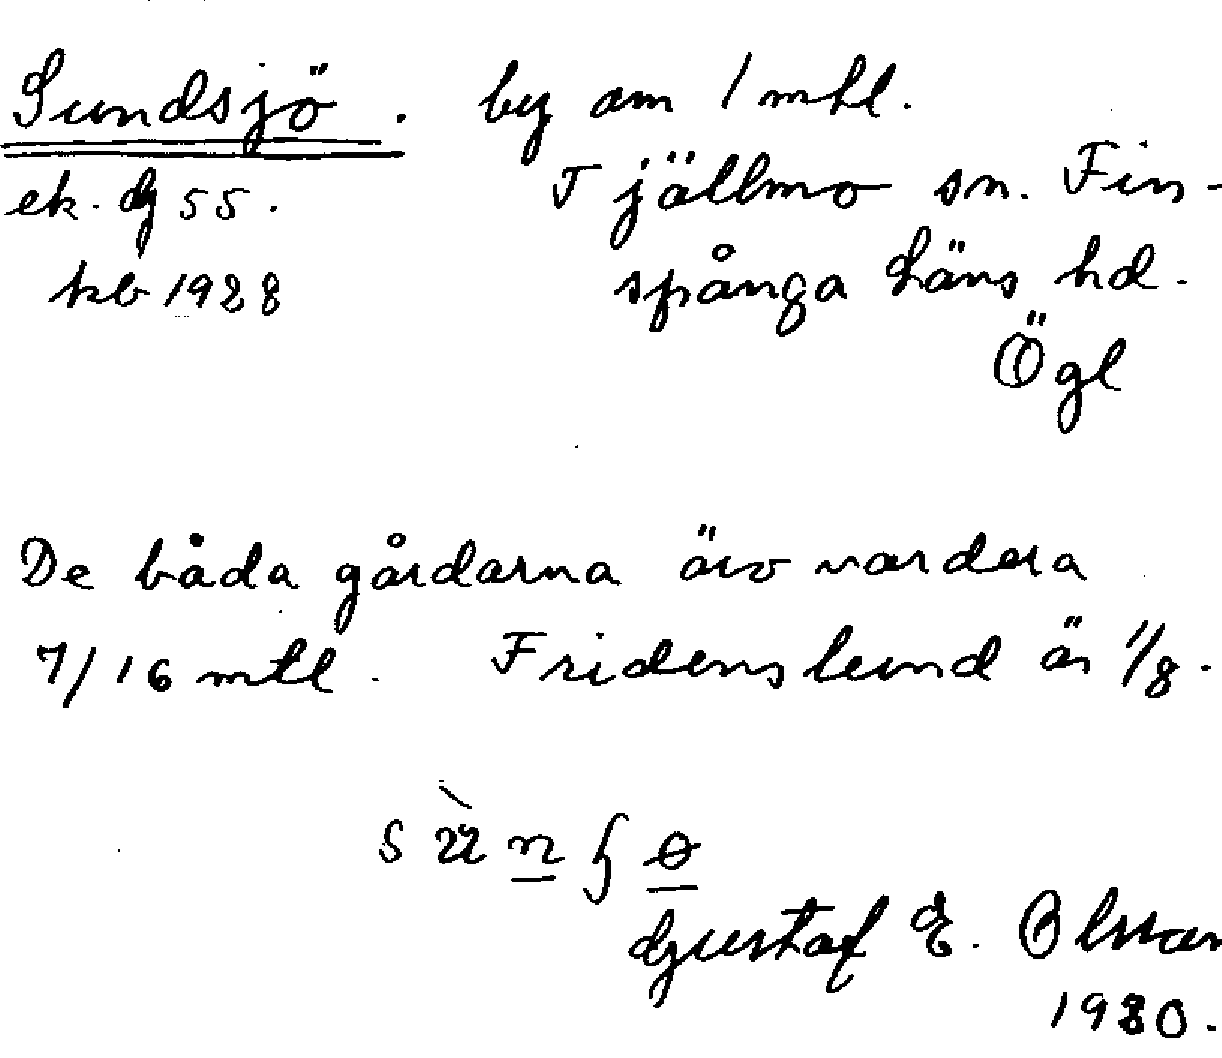 Sundsjö. by om 1 mtl.
ek. bg 55. Tjällmo sn. Fin-
kb 1928 spånga läns hd.
Ögl
De båda gårdarna äro vardera
7/16 mtl. Fridenslund är 1/8.
Gustaf E. Olsson
1930.